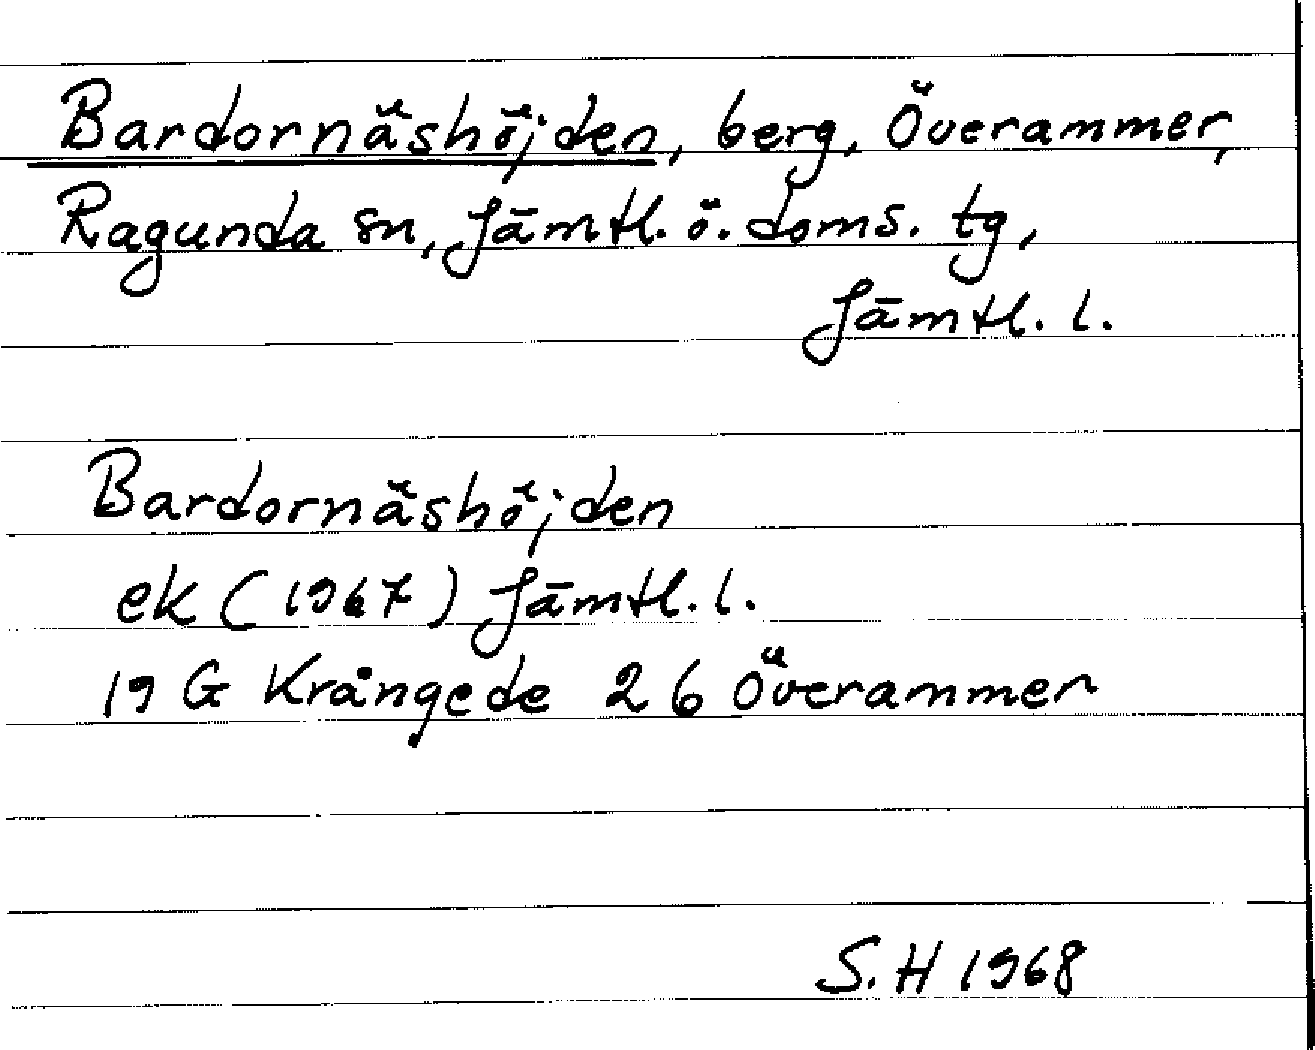 Bardornäshöjden, berg, Överammer,
Ragunda sn, Jämtl. ö. doms. tg,
Jämtl. l.
Bardornäshöjden
ek (1967) Jämtl. l.
19 G Krångede 26 Överammer
S. H 1968